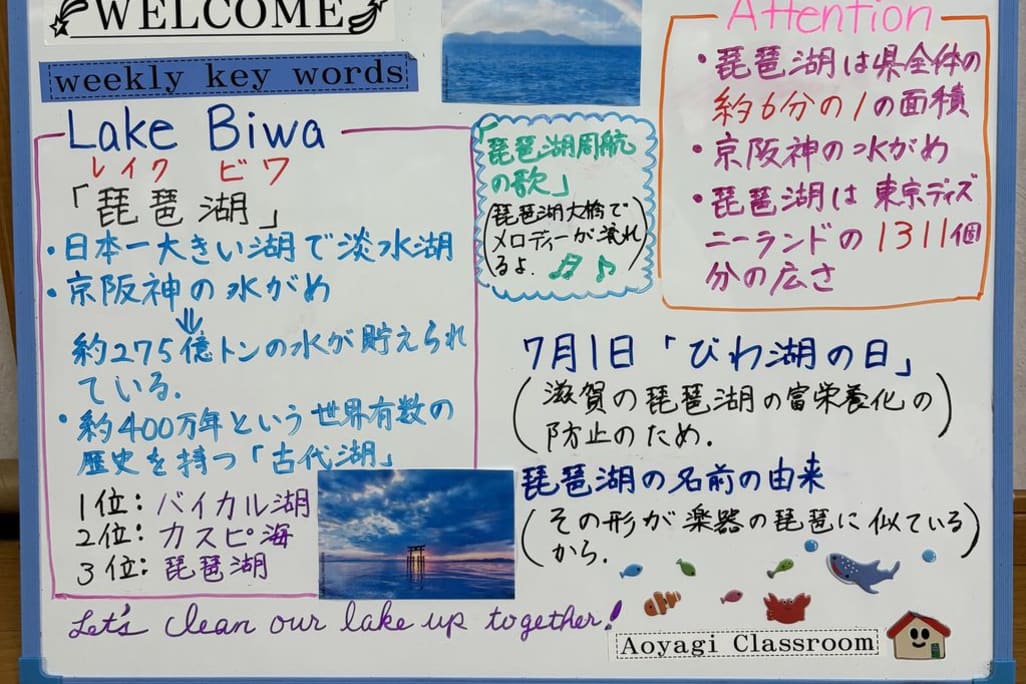 WELCOME
weekly key words
Lake Biwa
レイク ビワ
「琵琶湖」
・日本一大きい湖で淡水湖
・京阪神の水がめ
⇓
約275億トンの水が貯えられ
ている.
・約400万年という世界有数の
歴史を持つ「古代湖」
1位:バイカル湖
2位:カスピ海
3位:琵琶湖
「琵琶湖周航
の歌」
(琵琶湖大橋で
メロディーが流れ
るよ.)
Attention
・琵琶湖は県全体の
約6分の1の面積
・京阪神の水がめ
・琵琶湖は東京ディズ
ニーランドの1311個
分の広さ
7月1日「びわ湖の日」
(滋賀の琵琶湖の富栄養化の
防止のため.)
琵琶湖の名前の由来
(その形が楽器の琵琶に似ている
から.)
Let's clean our lake up together!
Aoyagi Classroom